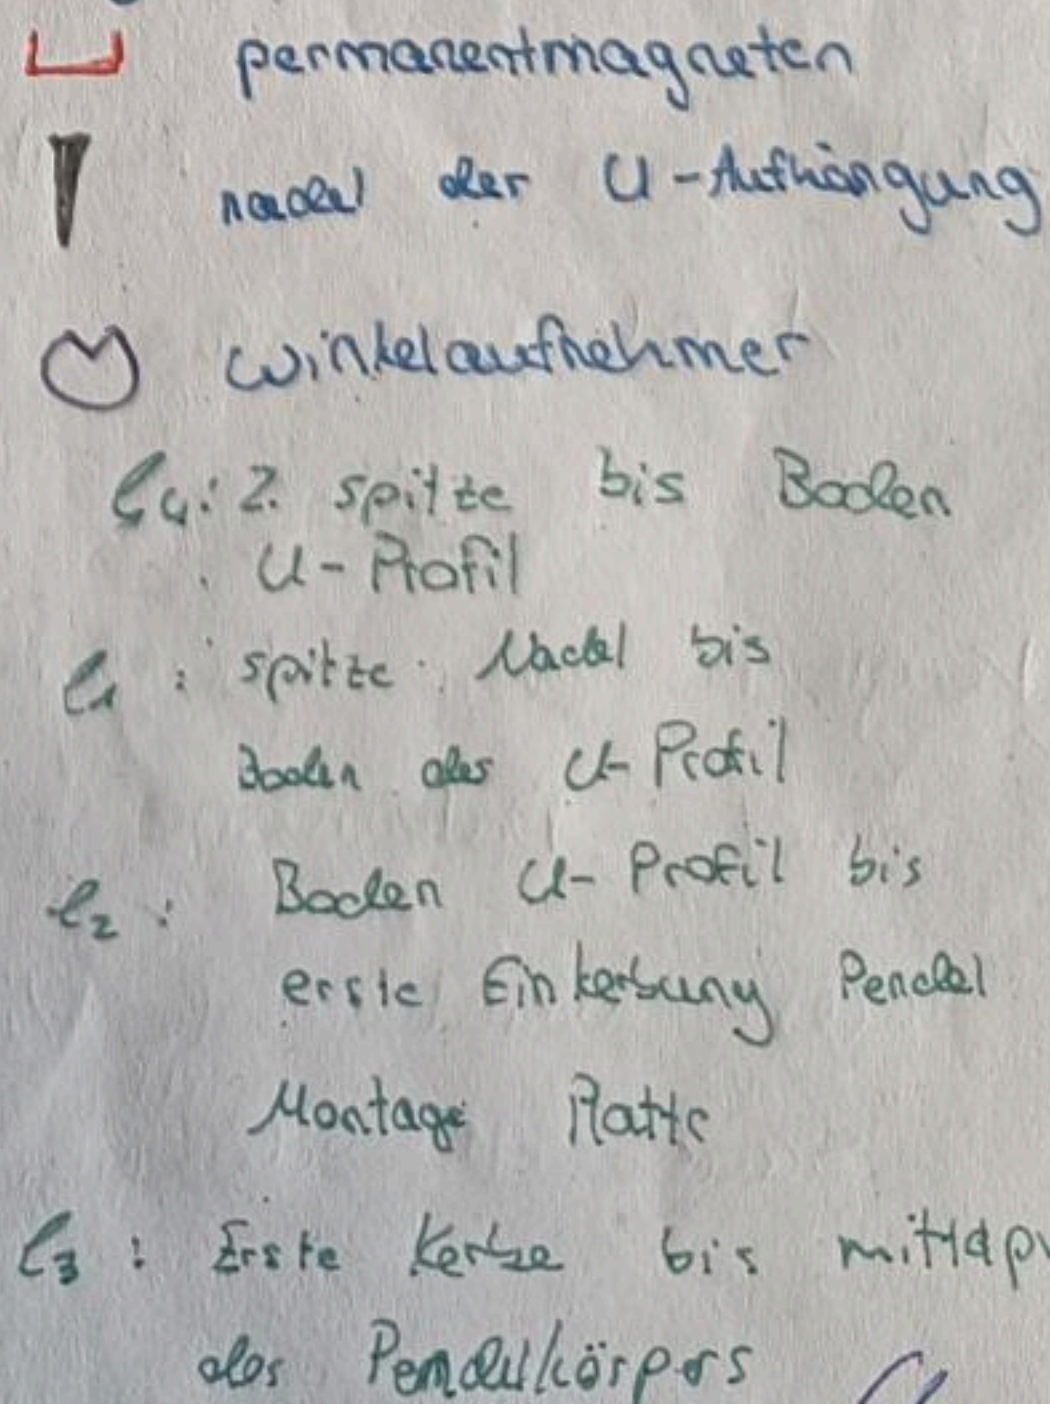 permanentmagneten
nadel der U-Aufhängung
winkelaufnehmer
l4: 2. spitze bis Boden
U-Profil
l1: spitze Nadel bis
Boden des U-Profil
l2: Boden U-Profil bis
erste Einkerbung Pendel
Montage Platte
l3: Erste Kerbe bis mittelpu
des Pendelkörpers